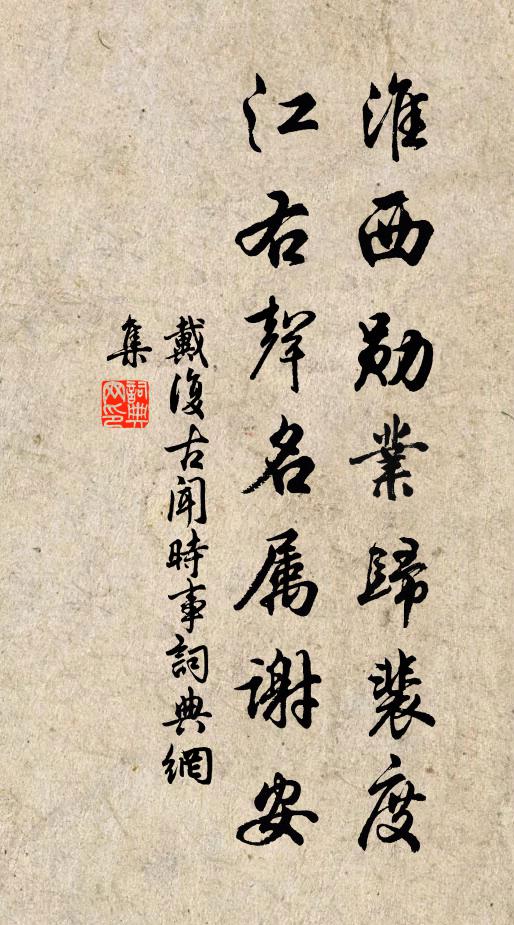 淮西勋業歸裴度
江右聲名属謝安
戴復古聞時事詞典網
集
詞典
网印